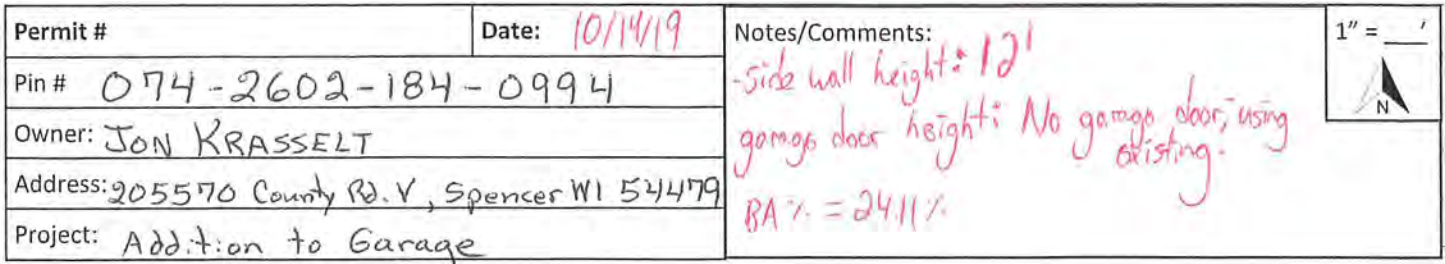 Permit #
Date: 10/14/19
Pin # 074-2602-184-0994
Owner: JON KRASSELT
Address: 205570 County Rd. V, Spencer WI 54479
Project: Addition to Garage
Notes/Comments:
-side wall height: 12'
garage door height: No garage door, using
existing.
BA % = 24.11%
1" = ___'
N